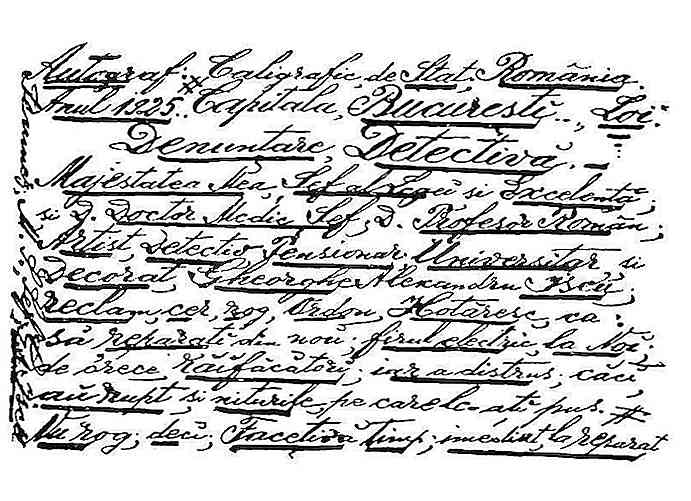 Autograf: Caligrafic, de Stat, România.
Anul 1225.. Capitala, Bucuresti.., Loi:
Denuntare, Detectivă. –
Majestatea Mea, Sef al Legii si Excelentă;
si D. Doctor Medic, Sef, D. Profesor Român,;
Artist, Detectiv, Pensionar, Universitar si
Decorat, Gheorghe Alexandru Iscu;
reclam, cer, rog, Ordon, Hotăresc, ca:
să reparati din nou, firul electric, la Noi,
de órece Răufăcători; iar a distrus; căci,
au rupt, si niturile, pe care le-ati pus. #
Vu rog; deci; Facetivă timp; imediat, la reparat